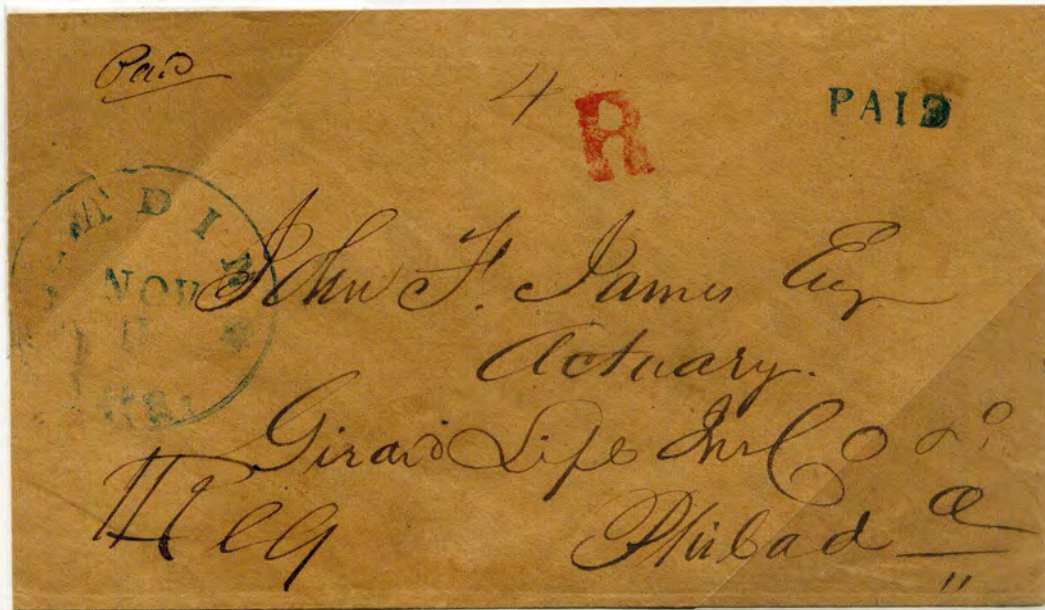 Paid
4 R PAID
NOV
John F. James Esq
Actuary.
Girard Life Ins Co
Philad a